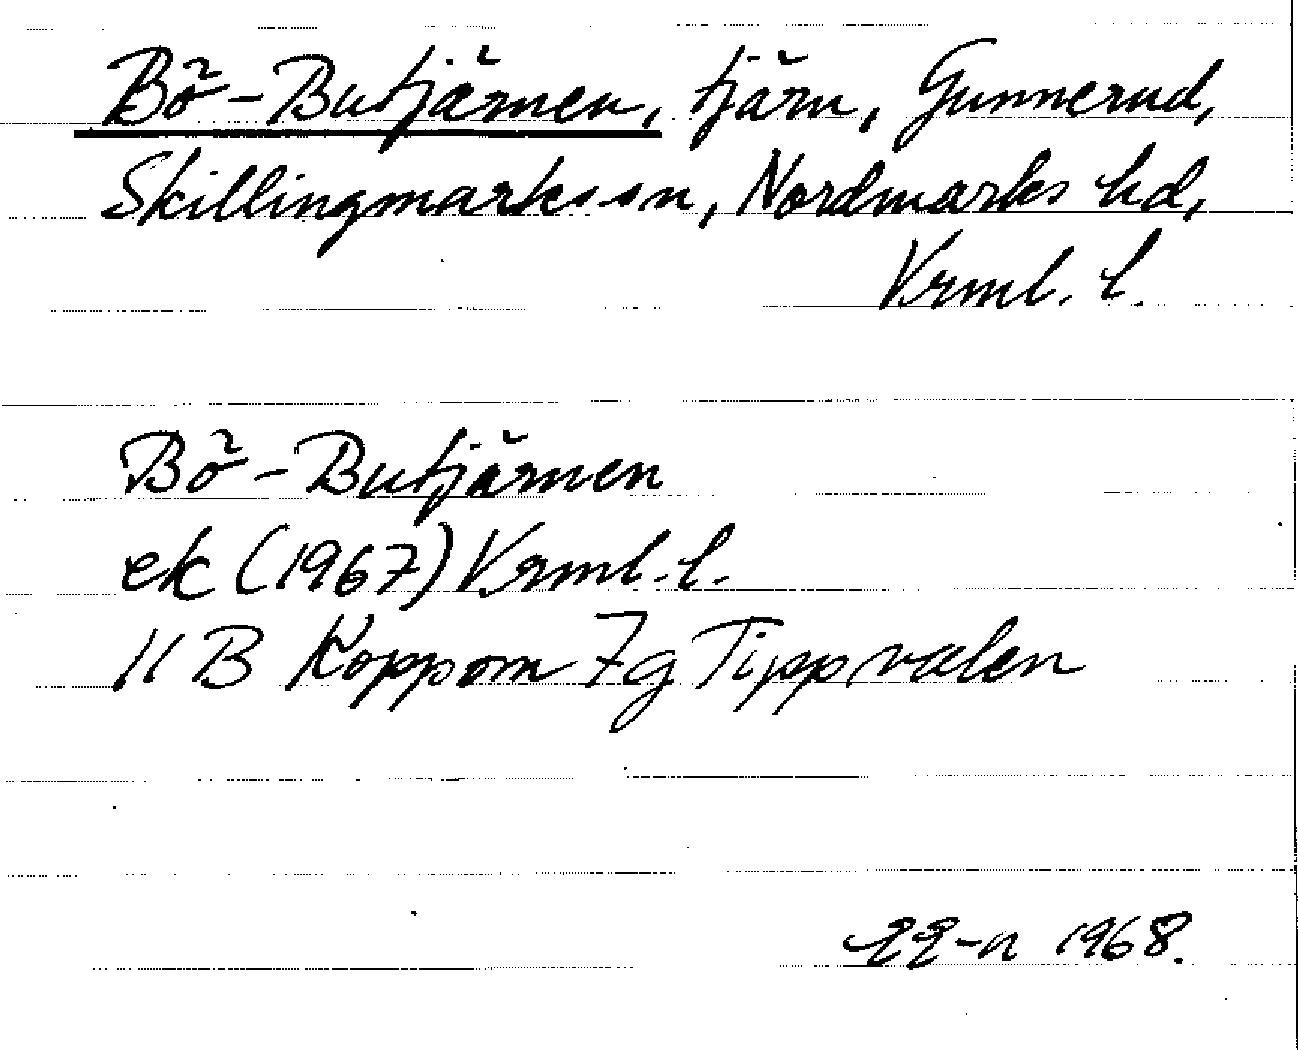 Bö-Butjärnen, tjärn, Gunnerud,
Skillingmarks sn, Nordmarks hd,
Vrml. l.
Bö-Butjärnen
ek (1967) Vrml. l.
11 B Koppom 7g Tippvalen
1968.